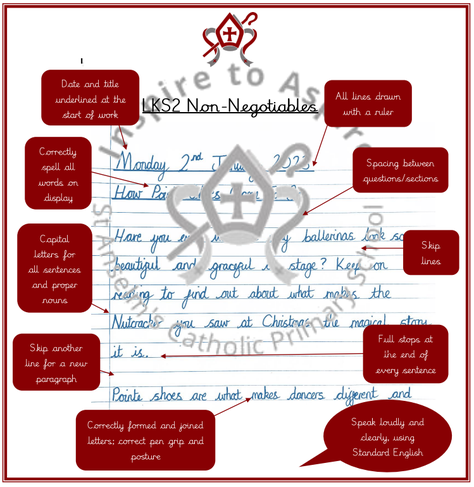 LKS2 Non-Negotiables
Date and title
underlined at the
start of work
All lines drawn
with a ruler
Correctly
spell all
words on
display
Spacing between
questions/sections
Capital
letters for
all sentences
and proper
nouns
Skip
lines.
Skip another
line for a new
paragraph
Full stops at
the end of
every sentence
Correctly formed and joined
letters; correct pen grip and
posture
Speak loudly and
clearly, using
Standard English
Monday 2nd
How
Have you ballerinas look so
beautiful and graceful stage? Keep on
reading to find out about what makes the
Nutcracker you saw at Christmas the magical story
it is..
Pointe shoes are what makes dancers different and
Inspire to
St Anselm's Catholic Primary School